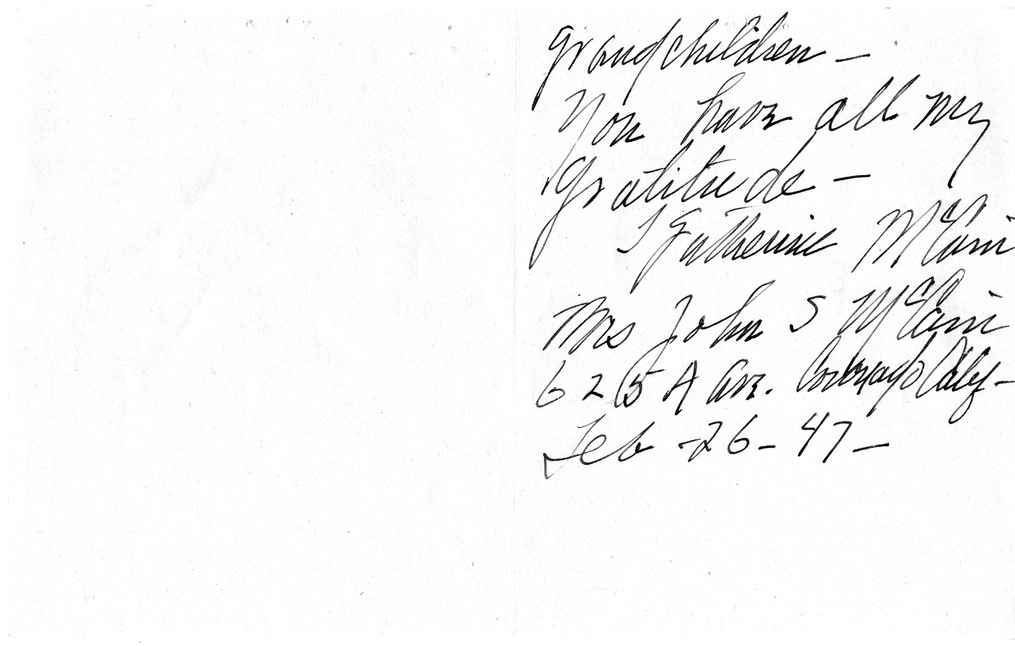 grandchildren —
You have all my
gratitude —
Katherine McCain
Mrs John S McCain
625 A ave. Coronado Calif —
Feb - 26 - 47 —